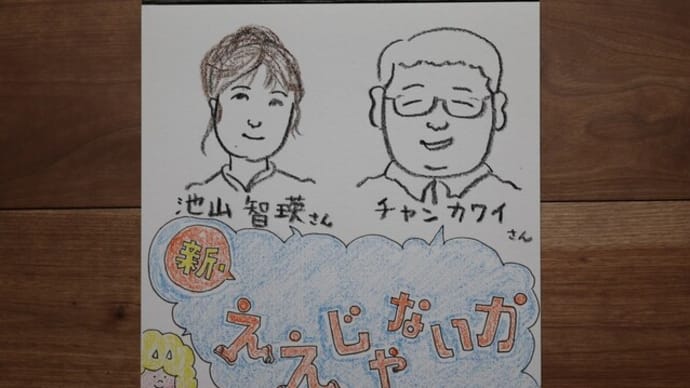 池山智瑛さん
チャンカワイさん
新
ええじゃないか